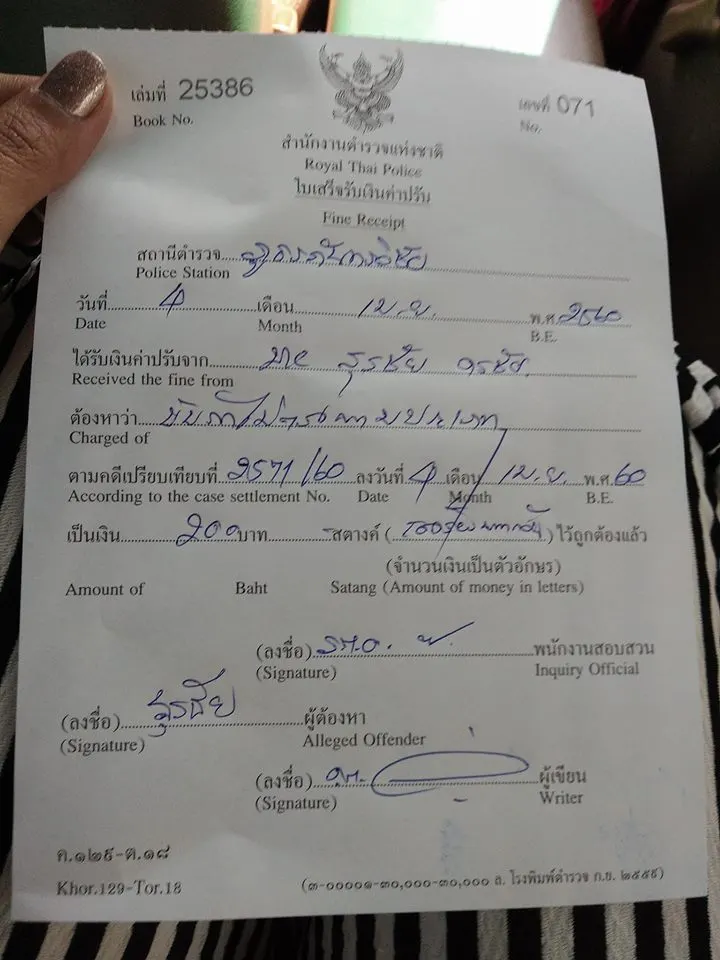 เล่มที่ 25386 เลขที่ 071
Book No. No.
สำนักงานตำรวจแห่งชาติ
Royal Thai Police
ใบเสร็จรับเงินค่าปรับ
Fine Receipt
สถานีตำรวจ
Police Station
วันที่ 4 เดือน เม.ย. พ.ศ. 2560
Date Month B.E.
ได้รับเงินค่าปรับจาก นาย สุรชัย
Received the fine from
ต้องหาว่า ขับรถไม่ตรงตามประเภท
Charged of
ตามคดีเปรียบเทียบที่ 2571/60 ลงวันที่ 4 เดือน เม.ย. พ.ศ. 60
According to the case settlement No. Date Month B.E.
เป็นเงิน 200 บาท - สตางค์ (สองร้อยบาทถ้วน) ไว้ถูกต้องแล้ว
(จำนวนเงินเป็นตัวอักษร)
Amount of Baht Satang (Amount of money in letters)
(ลงชื่อ) พนักงานสอบสวน
(Signature) Inquiry Official
(ลงชื่อ) สุรชัย ผู้ต้องหา
(Signature) Alleged Offender
(ลงชื่อ) ผู้เขียน
(Signature) Writer
ค.๑๒๙-ต.๑๘
Khor.129-Tor.18 (๓-๐๐๐๐๑-๓๐,๐๐๐-๓๐,๐๐๐ ล. โรงพิมพ์ตำรวจ ก.ย. ๒๕๕๙)